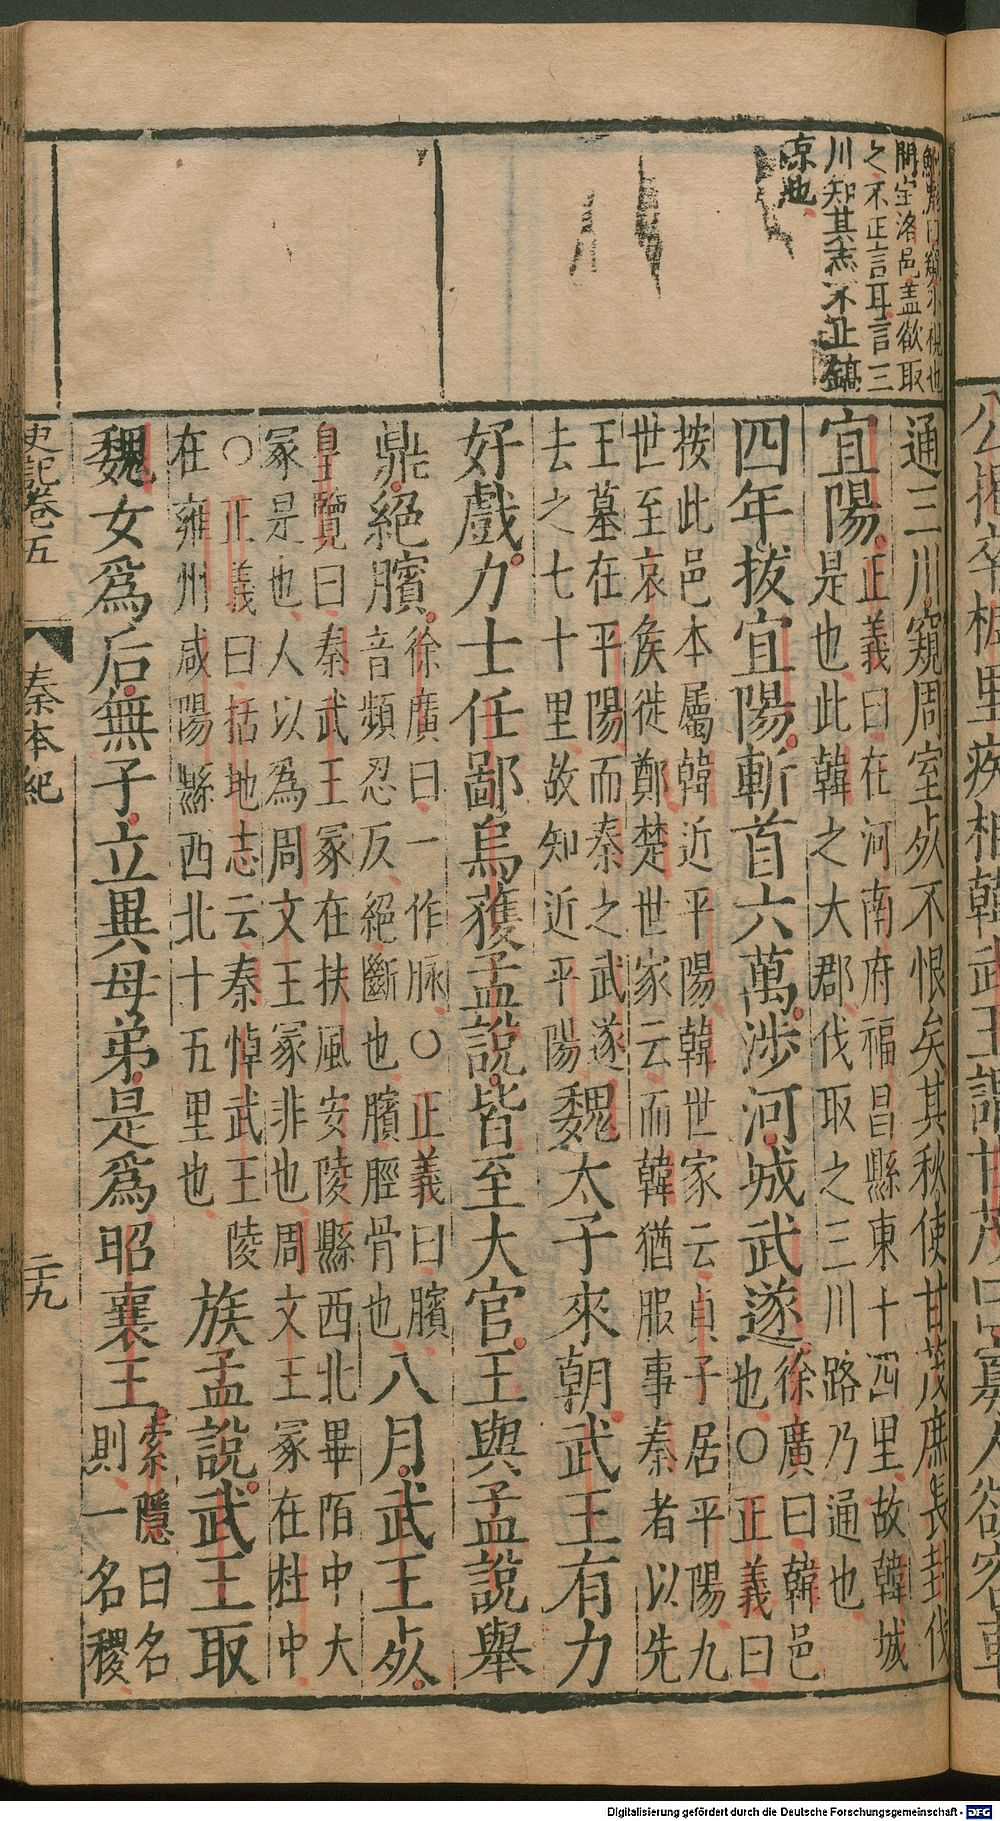 間室洛邑盖欲取
之不正言耳言三
川知其
通三川窺周室死不恨矣其秋使甘茂庶長封伐
宜陽正義曰在河南府福昌縣東十四里故韓城
是也此韓之大郡伐取之三川路乃通也
四年拔宜陽斬首六萬涉河城武遂徐廣曰韓邑
也○正義曰
按此邑本屬韓近平陽韓世家云貞子居平陽九
世至哀侯徙鄭楚世家云而韓猶服事秦者以先
王墓在平陽而秦之武遂
去之七十里故知近平陽魏太子來朝武王有力
好戲力士任鄙烏獲孟說皆至大官王與孟說舉
鼎絕臏徐廣曰一作脉○正義曰臏
音頻忍反絕斷也臏脛骨也八月武王死
皇覽曰秦武王冢在扶風安陵縣西北畢陌中大
冢是也人以為周文王冢非也周文王冢在杜中
○正義曰括地志云秦悼武王陵
在雍州咸陽縣西北十五里也族孟說武王取
魏女爲后無子立異母弟是爲昭襄王索隱曰名
則一名稷
史記卷五
秦本紀
二十九
Digitalisierung gefördert durch die Deutsche Forschungsgemeinschaft - DFG